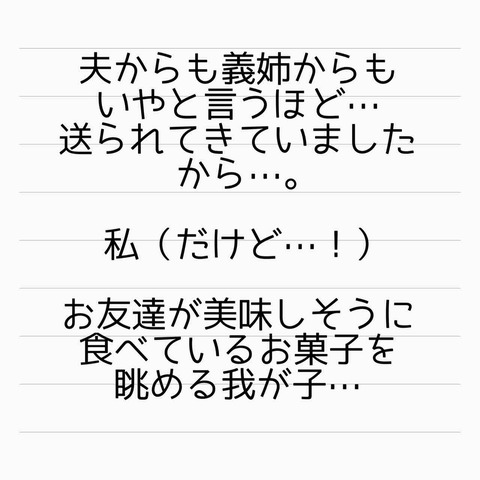 夫からも義姉からも
いやと言うほど…
送られてきていました
から…。
私（だけど…！）
お友達が美味しそうに
食べているお菓子を
眺める我が子…